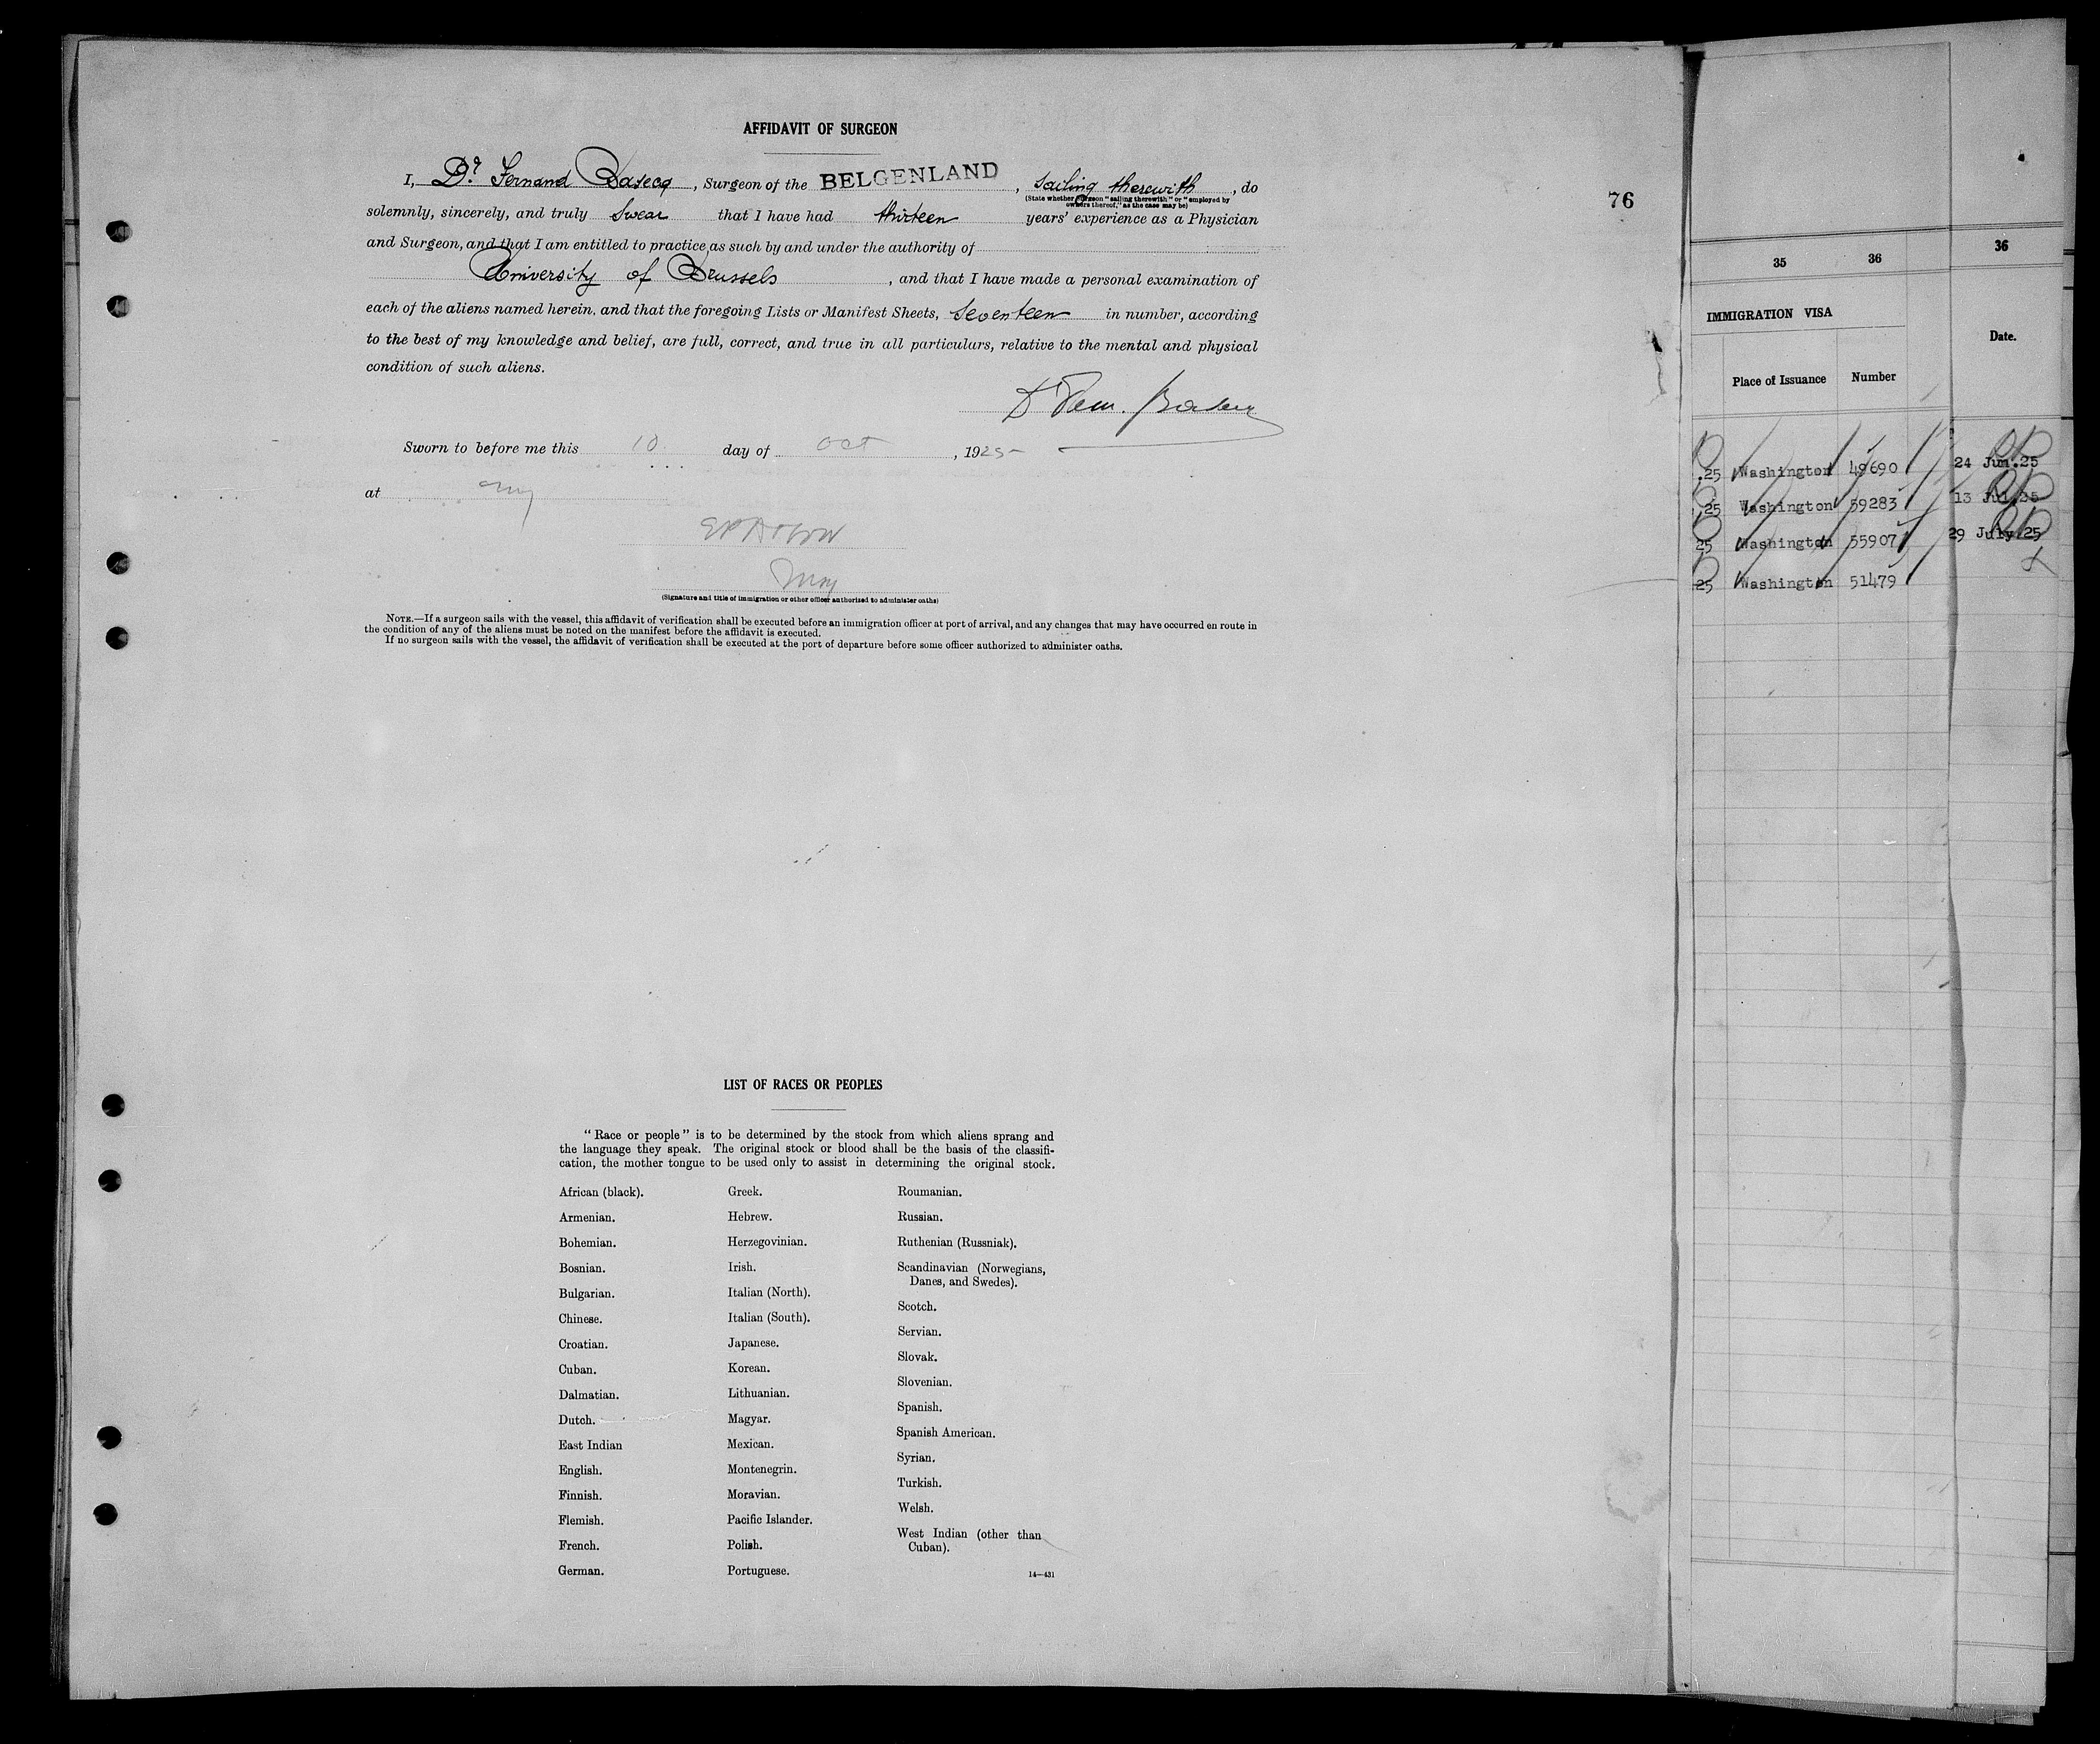 AFFIDAVIT OF SURGEON
I, Dr. Fernand Basecq, Surgeon of the BELGENLAND, Sailing therewith, do
(State whether surgeon "sailing therewith" or "employed by
owners thereof," as the case may be)
solemnly, sincerely, and truly Swear that I have had thirteen years' experience as a Physician
and Surgeon, and that I am entitled to practice as such by and under the authority of
University of Brussels, and that I have made a personal examination of
each of the aliens named herein, and that the foregoing Lists or Manifest Sheets, Seventeen in number, according
to the best of my knowledge and belief, are full, correct, and true in all particulars, relative to the mental and physical
condition of such aliens.
Sworn to before me this 10 day of Oct, 1925
at NY
(Signature and title of immigration or other officer authorized to administer oaths)
NOTE.—If a surgeon sails with the vessel, this affidavit of verification shall be executed before an immigration officer at port of arrival, and any changes that may have occurred en route in
the condition of any of the aliens must be noted on the manifest before the affidavit is executed.
If no surgeon sails with the vessel, the affidavit of verification shall be executed at the port of departure before some officer authorized to administer oaths.
LIST OF RACES OR PEOPLES
"Race or people" is to be determined by the stock from which aliens sprang and
the language they speak. The original stock or blood shall be the basis of the classifi-
cation, the mother tongue to be used only to assist in determining the original stock.
African (black).
Armenian.
Bohemian.
Bosnian.
Bulgarian.
Chinese.
Croatian.
Cuban.
Dalmatian.
Dutch.
East Indian
English.
Finnish.
Flemish.
French.
German.
Greek.
Hebrew.
Herzegovinian.
Irish.
Italian (North).
Italian (South).
Japanese.
Korean.
Lithuanian.
Magyar.
Mexican.
Montenegrin.
Moravian.
Pacific Islander.
Polish.
Portuguese.
Roumanian.
Russian.
Ruthenian (Russniak).
Scandinavian (Norwegians,
Danes, and Swedes).
Scotch.
Servian.
Slovak.
Slovenian.
Spanish.
Spanish American.
Syrian.
Turkish.
Welsh.
West Indian (other than
Cuban).
14—431
76
35 36
IMMIGRATION VISA
Place of Issuance Number
.25 Washington 49690
25 Washington 59283
25 Washington 55907
25 Washington 51479
36
Date.
24 Jun.25
13 Jul.25
29 July 25